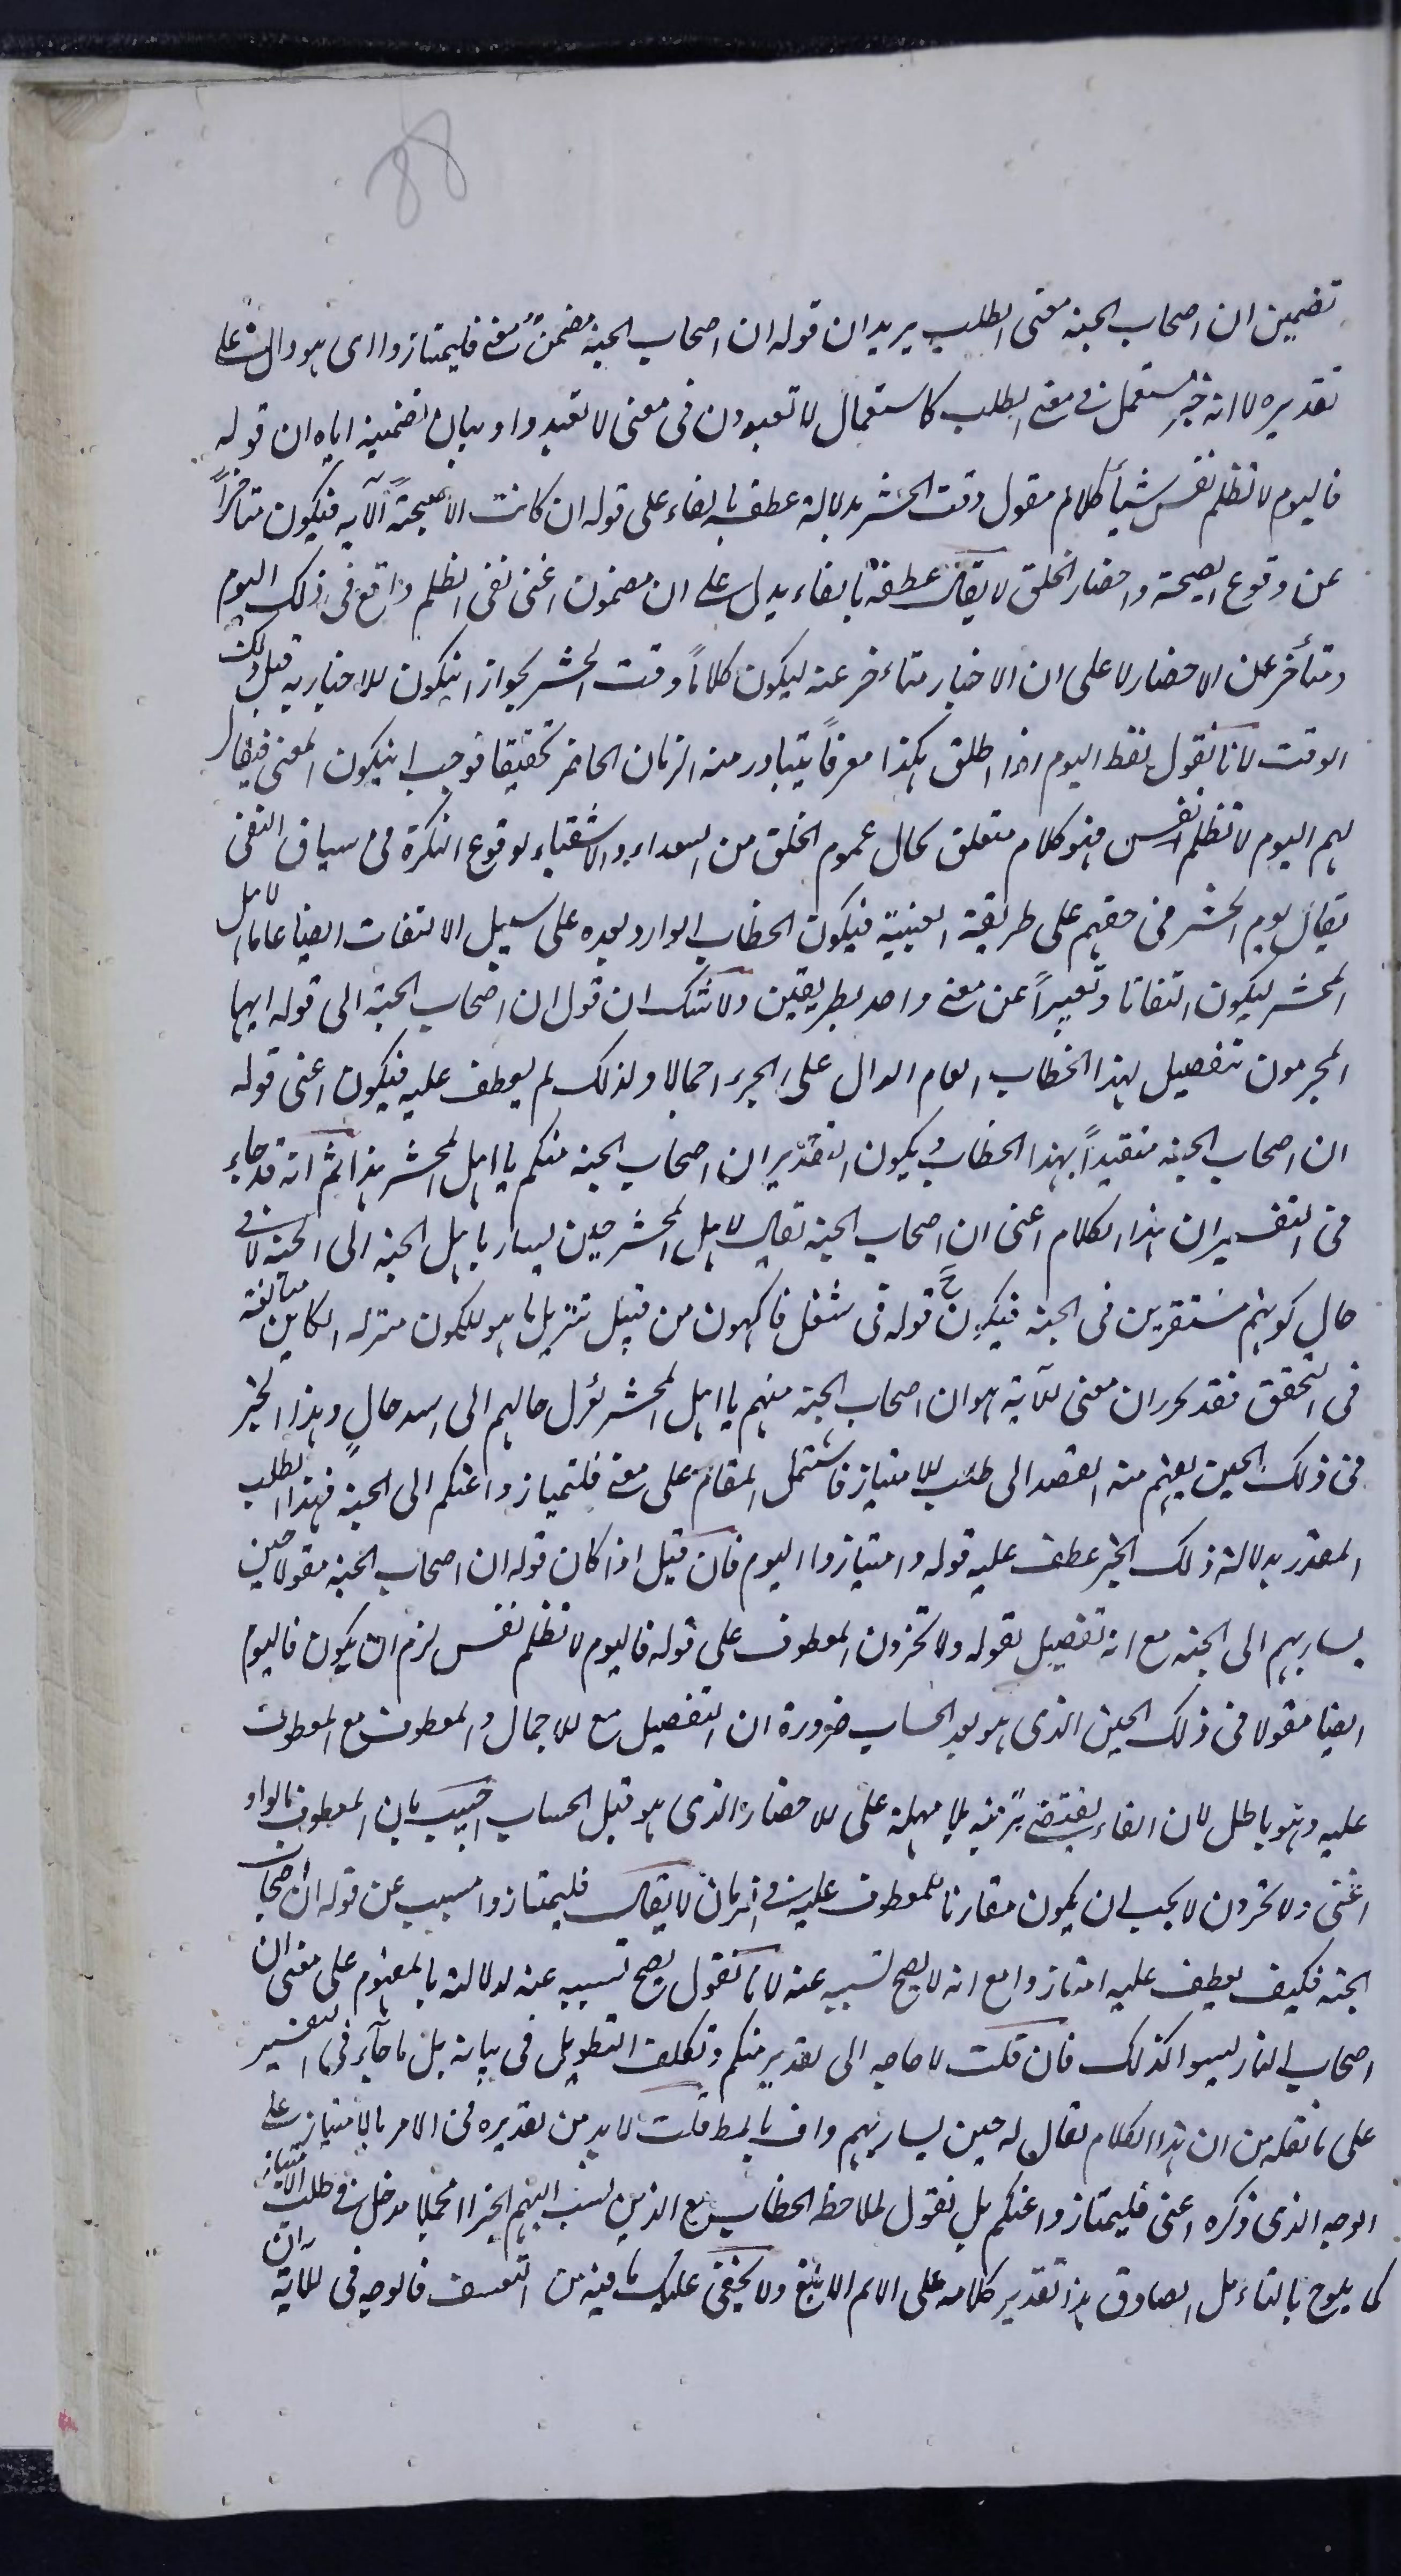 88
تضمين ان اصحاب الجنة معنى الطلب يريد ان قوله ان اصحاب الجنة مضمن معنى فليمتازوا اى هو دال على
تقديره لا انه خبر مستعمل فى معنى الطلب كاستعمال لا تعبدون فى معنى لا تعبدوا وبيان تضمينه اياه ان قوله
فاليوم لا تظلم نفس شيأ كلام مقول وقت الحشر بدلالة عطفه بالفاء على قوله ان كانت الا صيحة الآية فيكون متأخراً
عن وقوع الصيحة واحضار الخلق لا يقال عطفه بالفاء يدل على ان مضمون اعنى نفى الظلم واقع فى ذلك اليوم
ومتأخر عن الاحضار لا على ان الاخبار متاءخر عنه ليكون كلاماً وقت الحشر لجواز ان يكون الاخبار به قبل ذلك
الوقت لانا نقول لفظ اليوم اذا اطلق هكذا معرفاً يتبادر منه الزمان الحاضر تحقيقا فوجب ان يكون المعنى فيقال
لهم اليوم لا تظلم نفس فهو كلام متعلق بحال عموم الخلق من السعداء والاشقياء لوقوع النكرة فى سياق النفى
يقال يوم الحشر فى حقهم على طريقة الغيبة فيكون الخطاب الوارد بعده على سبيل الالتفات ايضا عاما لاهل
المحشر ليكون التفاتا وتعبيراً عن معنى واحد بطريقين ولا شك ان قول ان اصحاب الجنة الى قوله ايها
المجرمون تفصيل لهذا الخطاب العام الدال على الجزء اجمالا ولذلك لم يعطف عليه فيكون اعنى قوله
ان اصحاب الجنة متقيداً بهذا الخطاب ويكون التقدير ان اصحاب الجنة منكم يا اهل المحشر هذا ثم انه قد جاء
فى التفسير ان هذا الكلام اعنى ان اصحاب الجنة تقال لاهل المحشر حين يسار باهل الجنة الى الجنة لا فى
حال كونهم مستقرين فى الجنة فيكون ح قوله فى شغل فاكهون من قبيل تنزيل ما هو للكون منزلة الكاين مبالغة
فى التحقق فقد تحرر ان معنى الآية هو ان اصحاب الجنة منهم يا اهل المحشر يؤل حالهم الى اسعد حال وهذا الخبر
فى ذلك الحين يفهم منه القصد الى طلب الامتياز فاشتمل المقام على معنى فليتميازوا عنكم الى الجنة فهذا الطلب
المقدر بدلالة ذلك الخبر عطف عليه قوله وامتيازوا اليوم فان قيل اذا كان قوله ان اصحاب الجنة مقولا حين
يسار بهم الى الجنة مع انه تفصيل لقوله ولا تجزون المعطوف على قوله فاليوم لا تظلم نفس لزم ان يكون فاليوم
ايضا مقولا فى ذلك الحين الذى هو بعد الحساب ضرورة ان التفصيل مع الاجمال والمعطوف مع المعطوف
عليه وهو باطل لان الفاء يقتضى ترتبه بلا مهلة على الاحضار الذى هو قبل الحساب اجيب بان المعطوف بالواو
اعنى ولا تجزون لا يجب ان يكون مقارنا للمعطوف عليه فى الزمان لا يقال فليمتازوا مسبب عن قوله ان اصحاب
الجنة فكيف يعطف عليه امتازوا مع انه لا يصح تسببه عنه لانا نقول يصح تسببه عنه لدلالته بالمفهوم على معنى ان
اصحاب النار ليسوا كذلك فان قلت لا حاجه الى تقدير منكم وتكلف التطويل فى بيانه بل ما جآء فى التفسير
على ما نقله من ان هذا الكلام يقال له حين يسار بهم واف بالمط قلت لا بد من تقديره فى الامر بالامتياز على
الوجه الذى ذكره اعنى فليمتازوا عنكم بل نقول لملاحظ الخطاب مع الذين نسب اليهم الخبر المحمليا مدخل فى طلب الامتياز
كما يلوح بالتاءمل الصادق هذا تقدير كلامه على الامر الابلغ ولا يخفى عليك ما فيه من التعسف فالوجه فى الماية ان